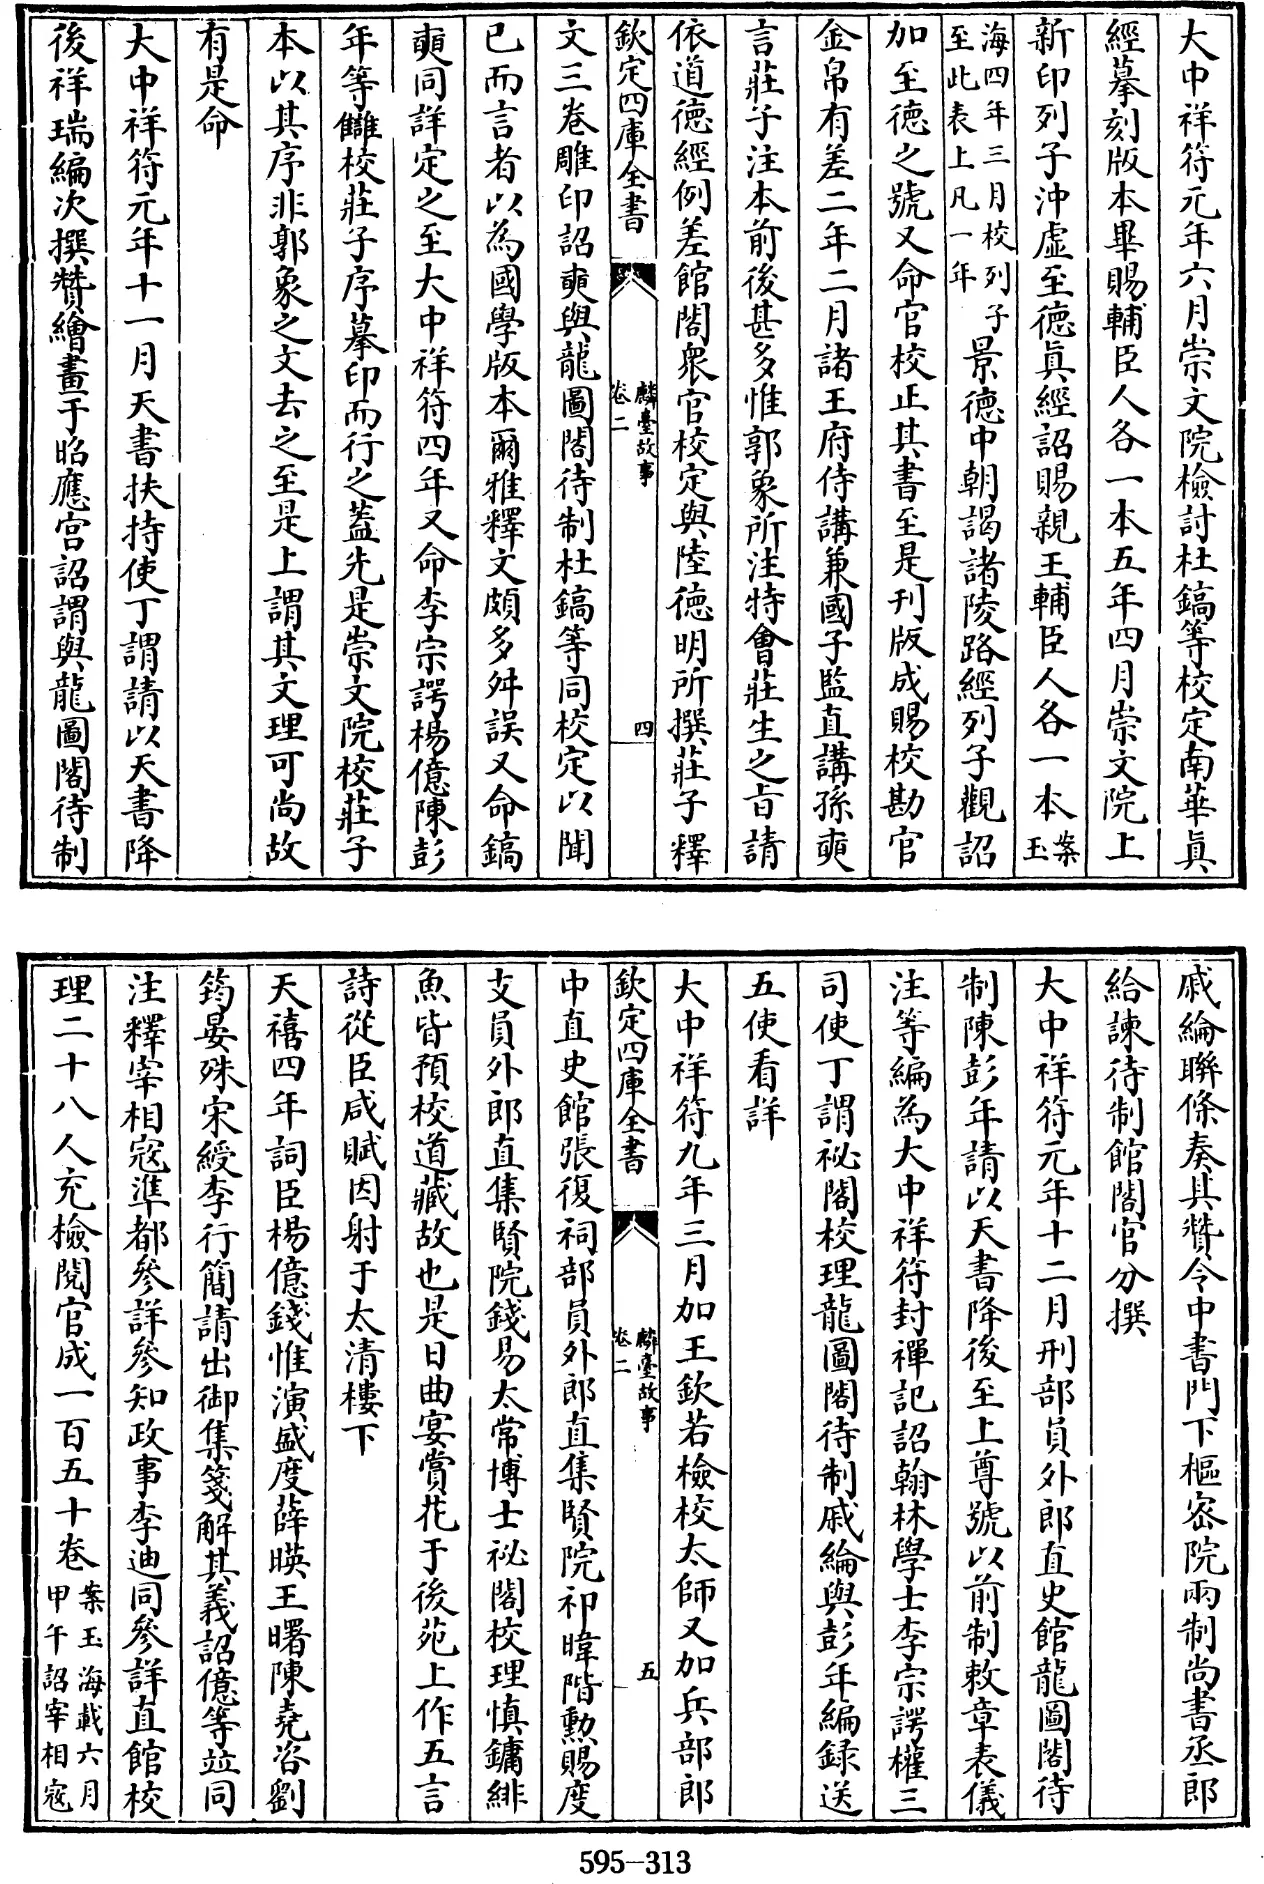 大中祥符元年六月崇文院檢討杜鎬等校定南華真
經摹刻版本畢賜輔臣人各一本五年四月崇文院上
新印列子沖虛至德真經詔賜親王輔臣人各一本案玉
海四年三月校列子至此表上凡一年景德中朝謁諸陵路經列子觀詔
加至德之號又命官校正其書至是刊版成賜校勘官
金帛有差二年二月諸王府侍講兼國子監直講孫奭
言莊子注本前後甚多惟郭象所注特會莊生之旨請
依道德經例差館閣眾官校定與陸德明所撰莊子釋
欽定四庫全書 麟臺故事 卷二 四
文三卷雕印詔奭與龍圖閣待制杜鎬等同校定以聞
已而言者以為國學版本爾雅釋文頗多舛誤又命鎬
奭同詳定之至大中祥符四年又命李宗諤楊億陳彭
年等讎校莊子序摹印而行之蓋先是崇文院校莊子
本以其序非郭象之文去之至是上謂其文理可尚故
有是命
大中祥符元年十一月天書扶持使丁謂請以天書降
後祥瑞編次撰贊繪畫于昭應宮詔謂與龍圖閣待制
戚綸聯條奏其贊令中書門下樞密院兩制尚書丞郎
給諫待制館閣官分撰
大中祥符元年十二月刑部員外郎直史館龍圖閣待
制陳彭年請以天書降後至上尊號以前制敕章表儀
注等編為大中祥符封禪記詔翰林學士李宗諤權三
司使丁謂祕閣校理龍圖閣待制戚綸與彭年編錄送
五使看詳
大中祥符九年三月加王欽若檢校太師又加兵部郎
欽定四庫全書 麟臺故事 卷二 五
中直史館張復祠部員外郎直集賢院祁暐階勲賜度
支員外郎直集賢院錢易太常博士祕閣校理慎鏞緋
魚皆預校道藏故也是日曲宴賞花于後苑上作五言
詩從臣咸賦因射于太清樓下
天禧四年詞臣楊億錢惟演盛度薛暎王曙陳堯咨劉
筠晏殊宋綬李行簡請出御集箋解其義詔億等並同
注釋宰相寇準都參詳參知政事李迪同參詳直館校
理二十八人充檢閱官成一百五十卷案玉海載六月甲午詔宰相寇
595-313